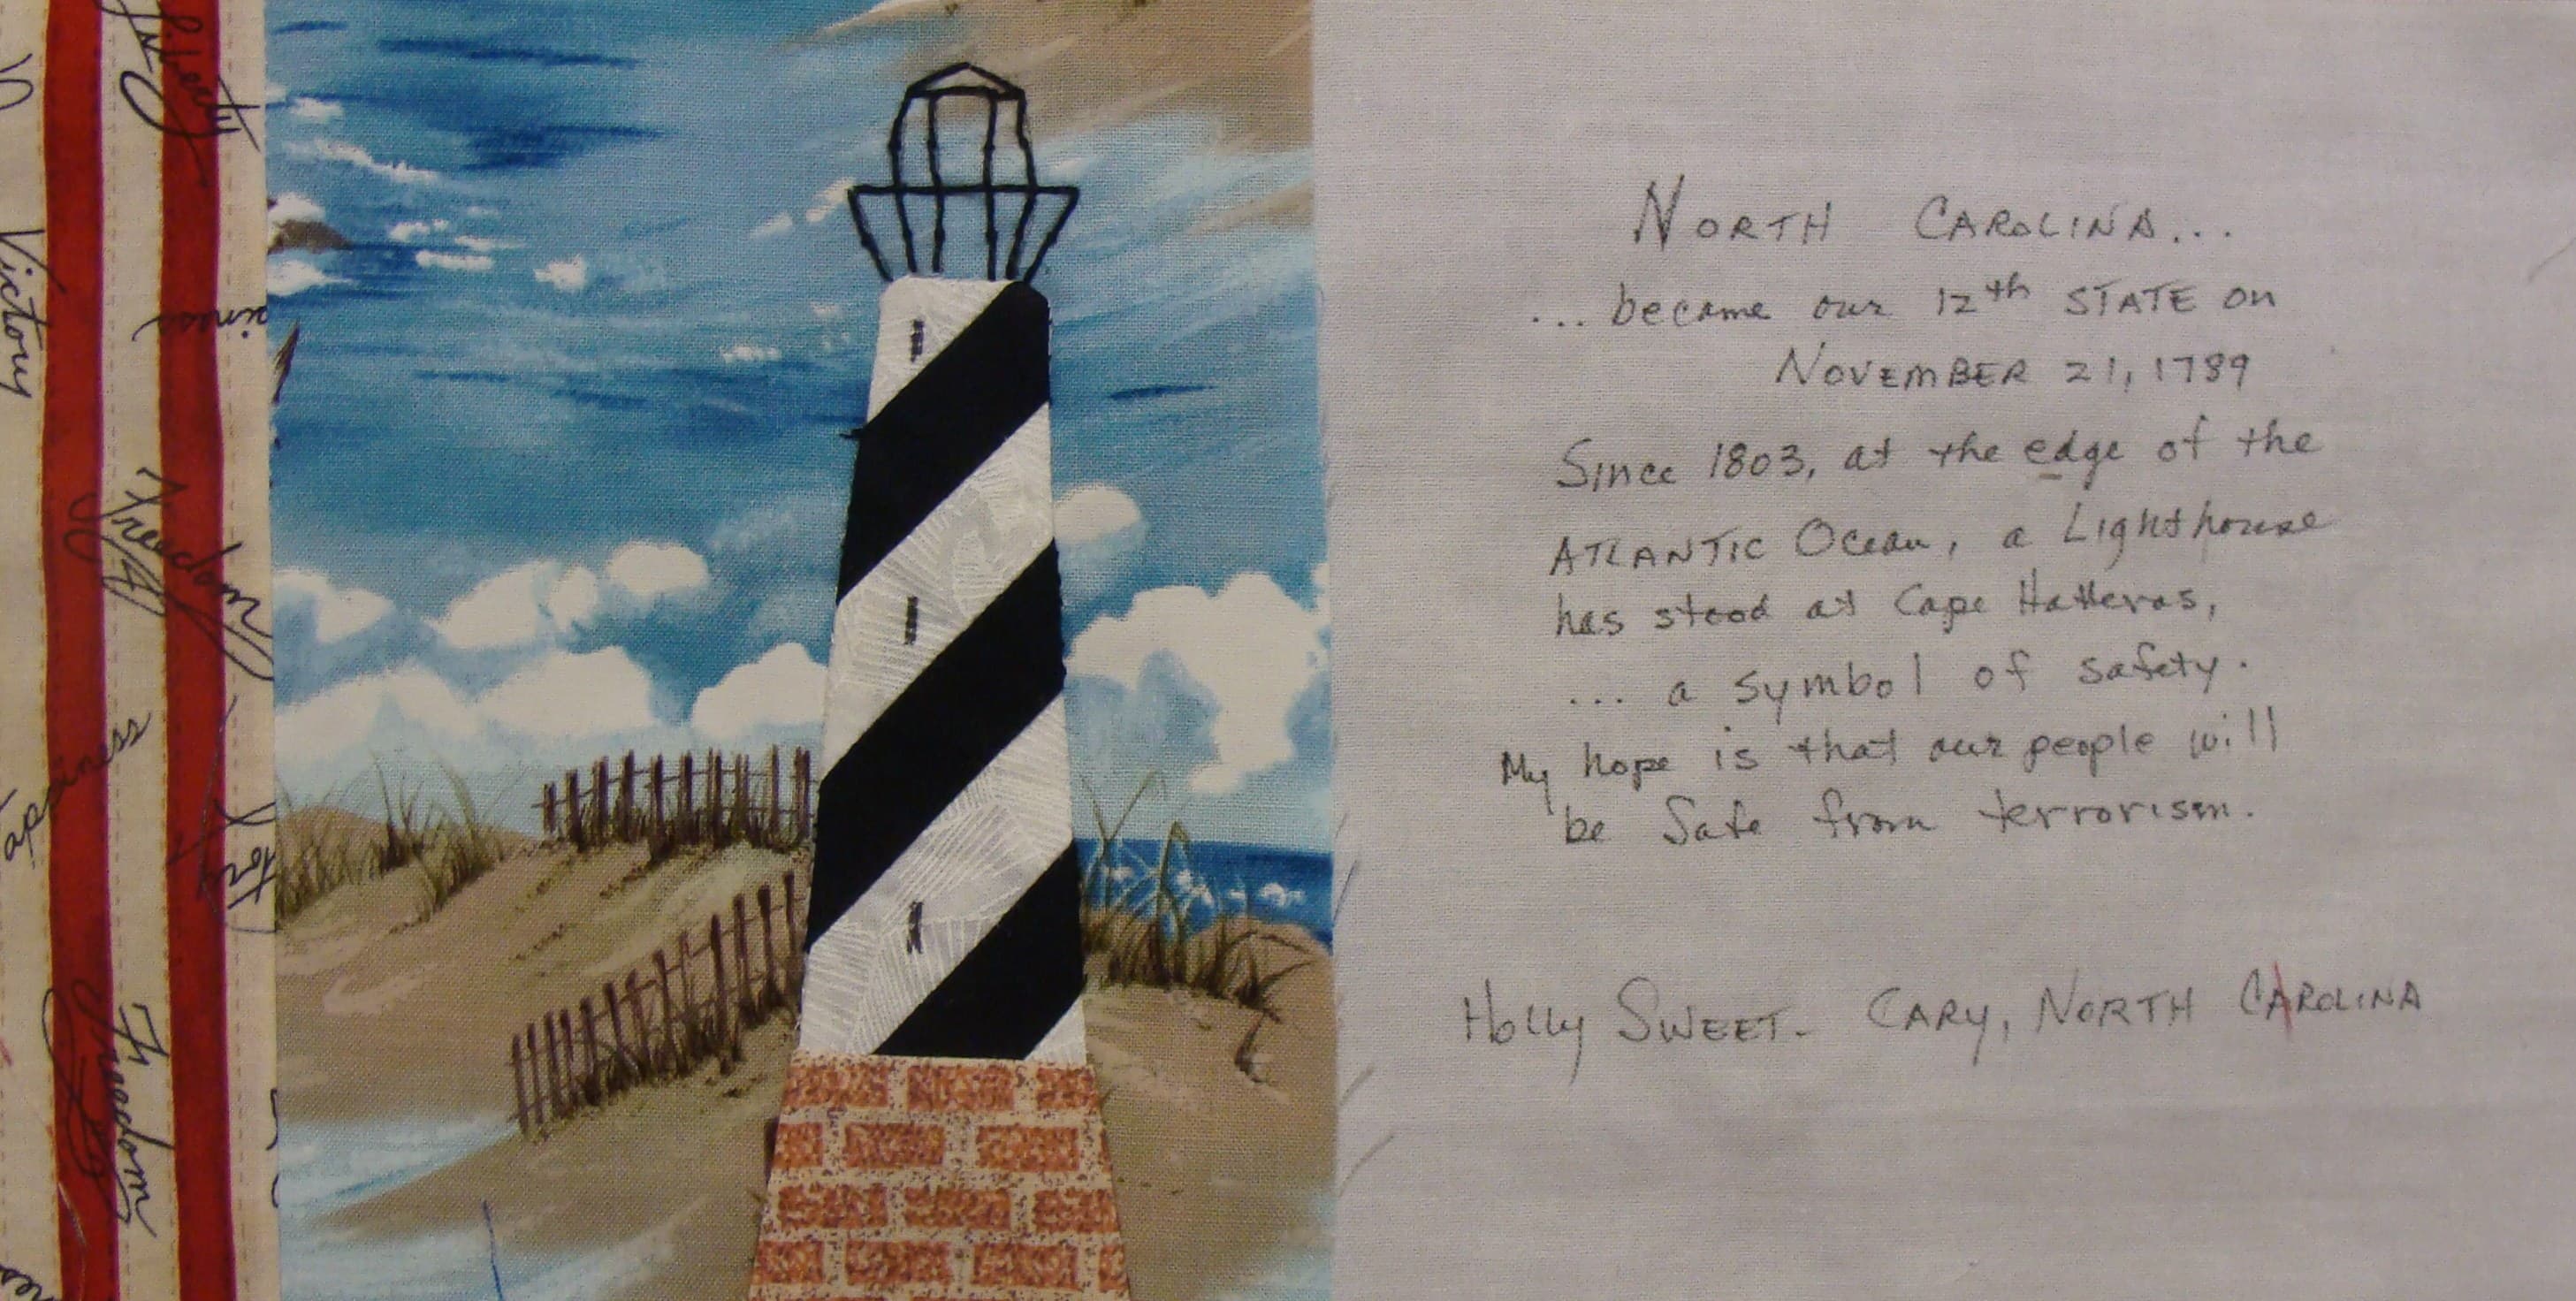 Liberty
Victory
Freedom
Happiness
Freedom
NORTH CAROLINA...
... became our 12th STATE on
NOVEMBER 21, 1789
Since 1803, at the edge of the
ATLANTIC Ocean, a Lighthouse
has stood at Cape Hatteras,
... a symbol of safety.
My hope is that our people will
be Safe from terrorism.
Holly SWEET- CARY, NORTH CAROLINA